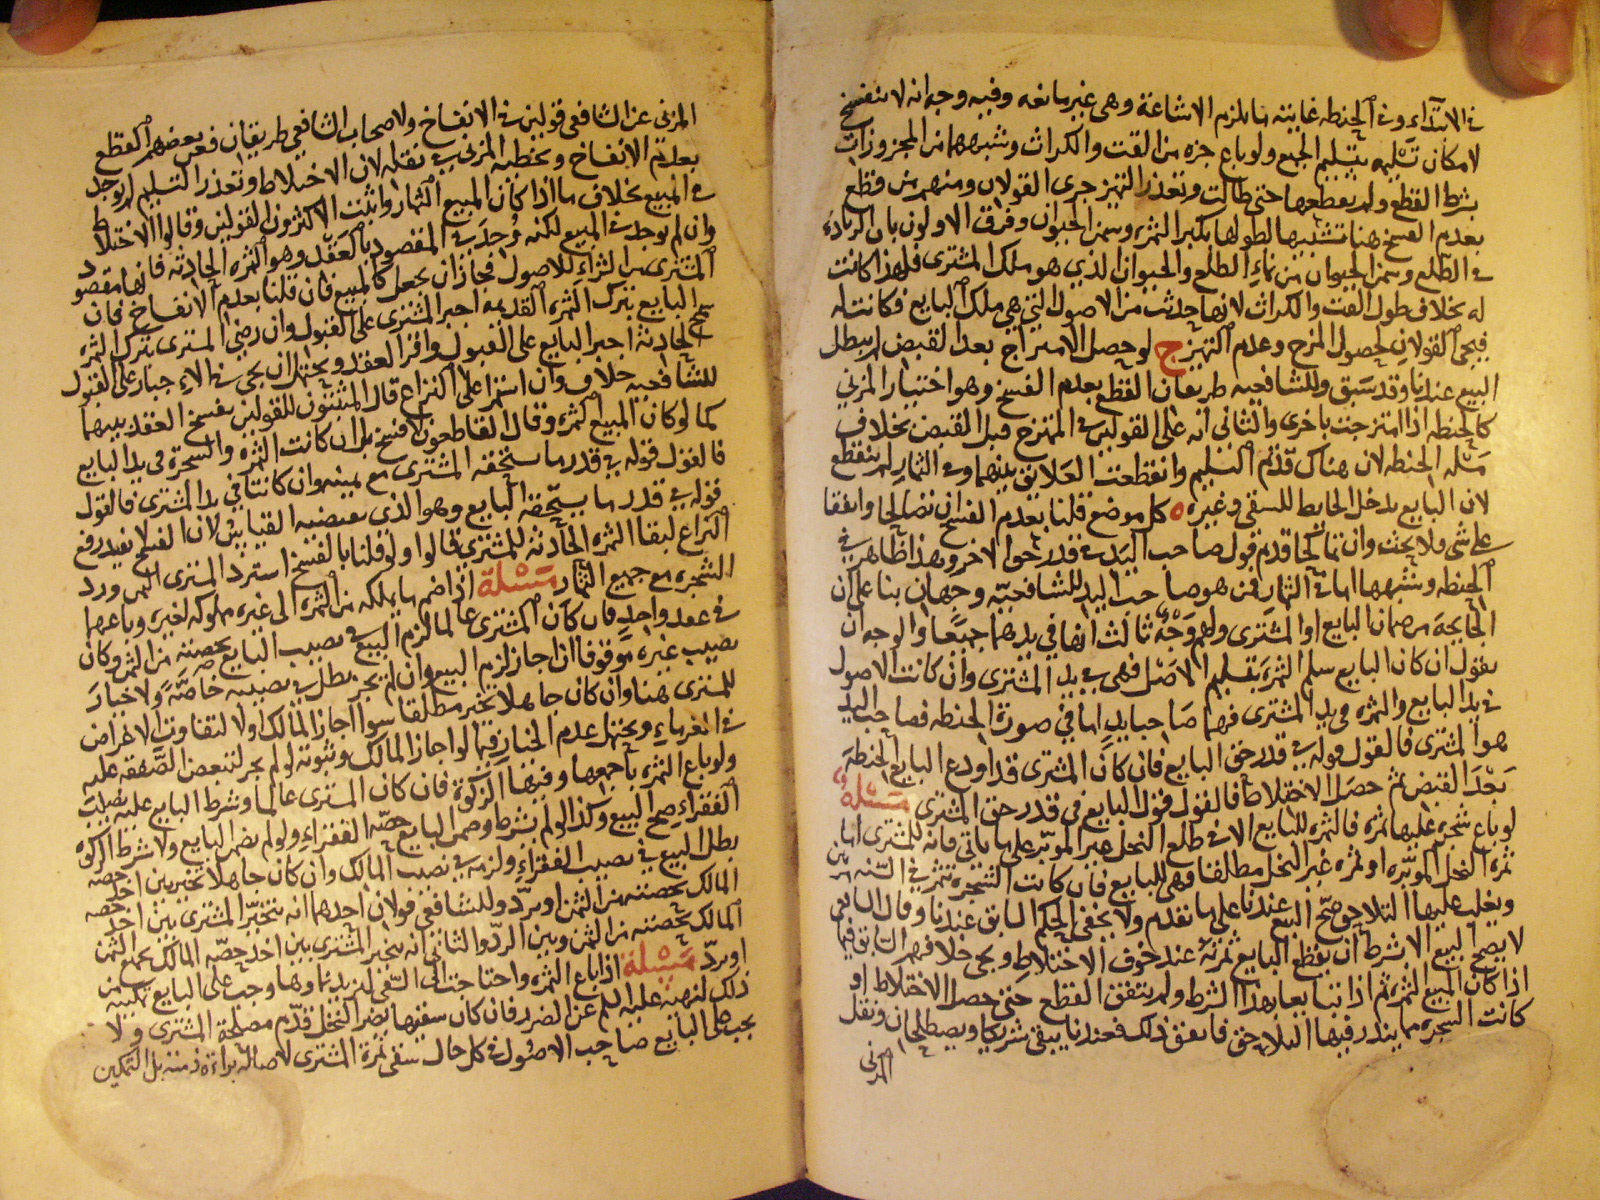 في الابتداء وفي الحنطه غايته ما يلزم الاشاعة وهي غير مانعه وفيه وجه انه لا ينفسخ
لامكان تسليمه بتسليم الجميع ولو باع جزه من القت والكراث وشبههما من المجزوزات
بشرط القطع ولم يقطعها حتى طالت وتعذر التميز جرى القولان ومنهم من قطع
بعدم الفسخ هنا تشبيها لطولها بكبر الثمره وسمن الحيوان وفرق الاولون بان الزيادة
في الطلع وسمن الحيوان من نماء الطلع والحيوان الذي هو ملك المشترى فلهذا كانت
له بخلاف طول القت والكراث لانها حدثت من الاصول التي هي ملك البايع فكانت له
فيجى القولان لحصول المزج وعدم التميز ج لو حصل الامتزاج بعد القبض لم يبطل
البيع عندنا وقد سبق وللشافعيه طريقان القطع بعدم الفسخ وهو اختيار المزني
كالحنطه اذا امتزجت باخرى والثاني انه على القولين في الممتزج قبل القبض بخلاف
مسله الحنطه لان هناك قد تم التسليم وانقطعت العلايق بينهما وفي الثمار لم ينقطع
لان البايع يدخل الحايط للسقى وغيره ه كل موضع قلنا بعدم الفسخ ان تصالحا واتفقا
على شى فلا بحث وان تحاكما قدم قول صاحب اليد في قدر حق الاخر وهذا ظاهر في
الحنطه وشبهها اما في الثمار فمن هو صاحب اليد للشافعيه وجهان بنا على ان
الجايحة من ضمان البايع او المشترى ولهم وجه ثالث انها في يدهما جميعا والوجه ان
نقول ان كان البايع سلم الثمرة بتسليم الاصل فهي في يد المشترى وان كانت الاصول
في يد البايع والثمره في يد المشترى فهما صاحبا يد اما في صورة الحنطه فصاحب اليد
هو المشترى فالقول قوله في قدر حق البايع فان كان المشترى قد اودع البايع الحنطة
بعد القبض ثم حصل الاختلاط فالقول قول البايع في قدر حق المشترى مسئلة
لو باع شجره عليها ثمره فالثمره للبايع الا في طلع النخل غير الموبر على ما ياتى فانه للمشترى اما
ثمرة النخل الموبره او ثمرة غير النخل مطلقا فهى للبايع فان كانت الشجره تثمر في السنه مرتين
ويغلب عليها التلاحق صح البيع عندنا على ما تقدم ولا يخفى الحكم السابق عندنا وقال الشافعي
لا يصح البيع الا بشرط ان يقطع البايع ثمرته عند خوف الاختلاط ويجى خلافهم السابق فيما
اذا كان المبيع الثمره ثم اذا تبايعا بهذا الشرط ولم يتفق القطع حتى حصل الاختلاط او
كانت الشجره مما يندر فيها التلاحق فاتفق ذلك فعندنا يبقى شريكا ويصطلحان ونقل
المزنى
المزنى عن الشافعي قولين في الانفساخ ولاصحاب الشافعي طريقان فعن بعضهم القطع
بعدم الانفساخ وتخطيه المزنى في نقله لان الاختلاط وتعذر التسليم لم يوجد
في المبيع بخلاف ما اذا كان المبيع الثمار واثبت الاكثرون القولين وقالوا الاختلاط
وان لم يوجد في المبيع لكنه وجد في المقصود بالعقد وهو الثمره الحادثه فانها مقصود
المشترى من الشراء للاصول فجاز ان يجعل كالمبيع فان قلنا بعدم الانفساخ فان
سمح البايع بترك الثمره القديمه اجبر المشترى على القبول وان رضى المشترى بترك الثمره
الحادثة اجبر البايع على القبول واقر العقد ويحتمل ان يجى في الاجبار على القبول
للشافعيه خلاف وان استمرا على النزاع قال المثبتون للقولين يفسخ العقد بينهما
كما لو كان المبيع الثمره وقال القاطعون لا فسخ بل ان كانت الثمره والشجرة في يد البايع
فالقول قوله في قدر ما يستحقه المشترى مع يمينه وان كانتا في يد المشترى فالقول
قوله في قدر ما يستحقه البايع وهو الذى يقتضيه القياس لان الفسخ لا يفيد رفع
النزاع لبقا الثمره الحادثه للمشترى قالوا ولو قلنا بالفسخ استرد المشترى الثمن ورد
الشجره مع جميع الثمار مسئلة اذا ضم ما يملكه من الثمره الى غيره مملوكه لغيره وباعهما
في عقد واحد فان كان المشترى عالما لزم البيع في نصيب البايع بحصته من الثمن وكان
نصيب غيره موقوفا ان اجاز لزم البيع وان لم يجز بطل في نصيبه خاصة ولا خيار
للمشترى هنا وان كان جاهلا تخير مطلقا سوا اجاز المالك او لا لتفاوت الاغراض
في الغرماء ويحتمل عدم الخيار فيما لو اجاز المالك وثبوته لو لم يجز لتبعض الصفقه عليه
ولو باع الثمره باجمعها وفيها الزكوة فان كان المشترى عالما وشرط البايع عليه نصيب
الفقراء صح البيع وكذا لو لم يشرط وضمن البايع حصه الفقراء ولو لم يضمن البايع ولا شرط الزكوة
بطل البيع في نصيب الفقراء ولزم في نصيب المالك وان كان جاهلا تخير بين اخذ حصه
المالك بحصته من الثمن او يرد وللشافعي قولان احدهما انه يتخير المشترى بين اخذ حصه
المالك بحصته من الثمن وبين الرد والثاني انه يتخير المشترى بين اخذ حصه المالك بجميع الثمن
او يرد مسئلة اذا باع الثمره واحتاجت الى السقى لتزيد نماوها وجب على البايع تمكينه من
ذلك لنهيه عليه السلم عن الضرر فان كان سقيها يضر النخل قدم مصلحة المشترى ولا
يجب على البايع صاحب الاصول في كل حال سقى ثمرة المشترى لاصاله براءة ذمته بل التمكين